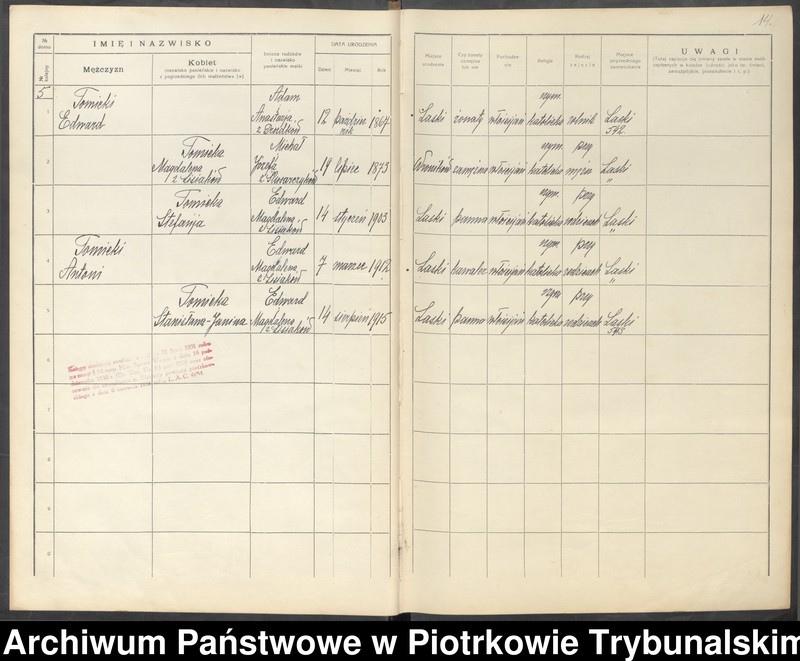 14.
№ domu
№ kolejny
IMIĘ I NAZWISKO
Mężczyzn
Kobiet
(nazwisko panieńskie i nazwisko z poprzedniego (ich) małżeństwa (w)
Imiona rodziców i nazwisko panieńskie matki
DATA URODZENIA
Dzień
Miesiąc
Rok
Miejsce urodzenia
Czy żonaty zamężna lub nie
Pochodzenie
Religia
Rodzaj zajęcia
Miejsce poprzedniego zamieszkania
UWAGI
5
1
Tomicki
Edward
Adam
Anastazja
12
paździer
nik
1867
Łaski
żonaty
włościjań
rzym.
katolicka
rolnik
Łaski
572
2
Tomicka
Magdalena
z Lisiaków
Michał
Józefa
z
19
lipiec
1873
zamężna
włościjań
rzym.
katolicka
przy
mężu
Łaski
"
3
Tomicka
Stefanija
Edward
Magdalena
z Lisiaków
14
styczeń
1903
Łaski
panna
włościjań
rzym.
katolicka
przy
rodzicach
Łaski
"
4
Tomicki
Antoni
Edward
Magdalena
z Lisiaków
7
marzec
1912
Łaski
kawaler
włościjań
rzym
katolicka
przy
rodzicach
Łaski
"
5
Tomicka
Stanisława-Janina
Edward
Magdalena
z Lisiaków
14
sierpień
1915
Łaski
panna
włościjań
rzym
katolicka
przy
rodzicach
Łaski
6
7
8
9
Archiwum Państwowe w Piotrkowie Trybunalskim